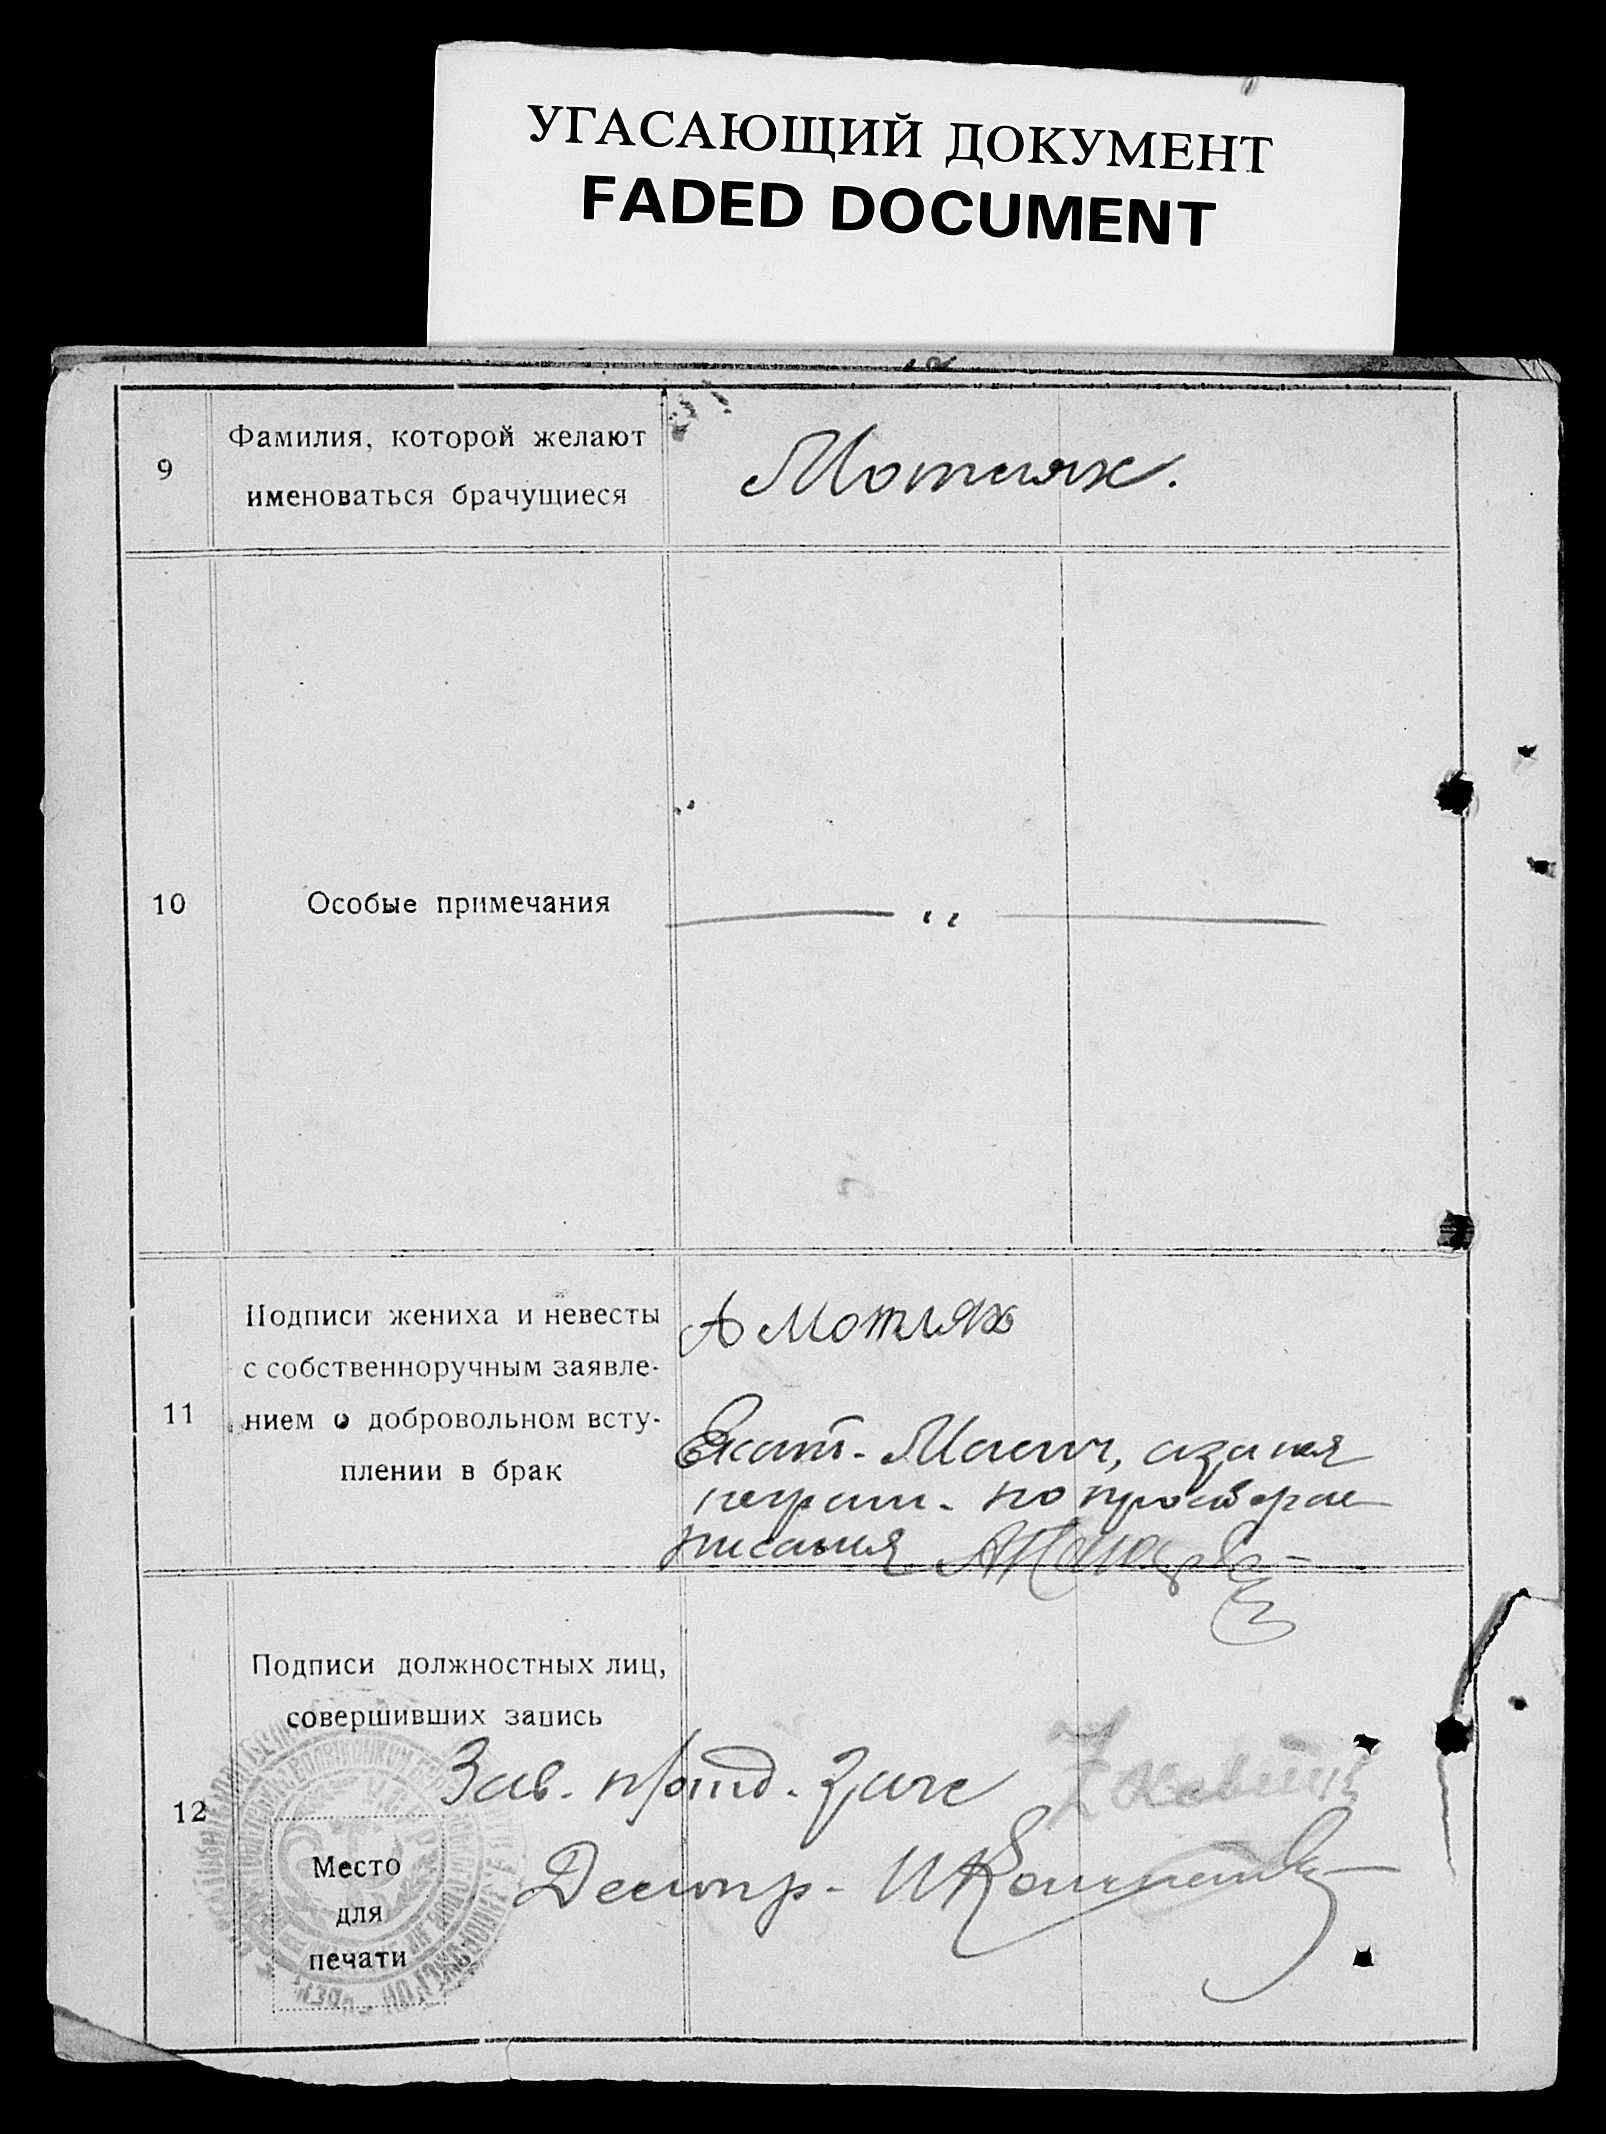 УГАСАЮЩИЙ ДОКУМЕНТ
FADED DOCUMENT
9
Фамилия, которой желают
именоваться брачущиеся
Мотлях.
10
Особые примечания
— " —
11
Подписи жениха и невесты
с собственноручным заявле-
нием о добровольном всту-
плении в брак
А Мотлях
Екат.
неграм. по просьбе рас
писался
12
Подписи должностных лиц,
совершивших запись
Зав. п/отд. Загс
Место
для
печати